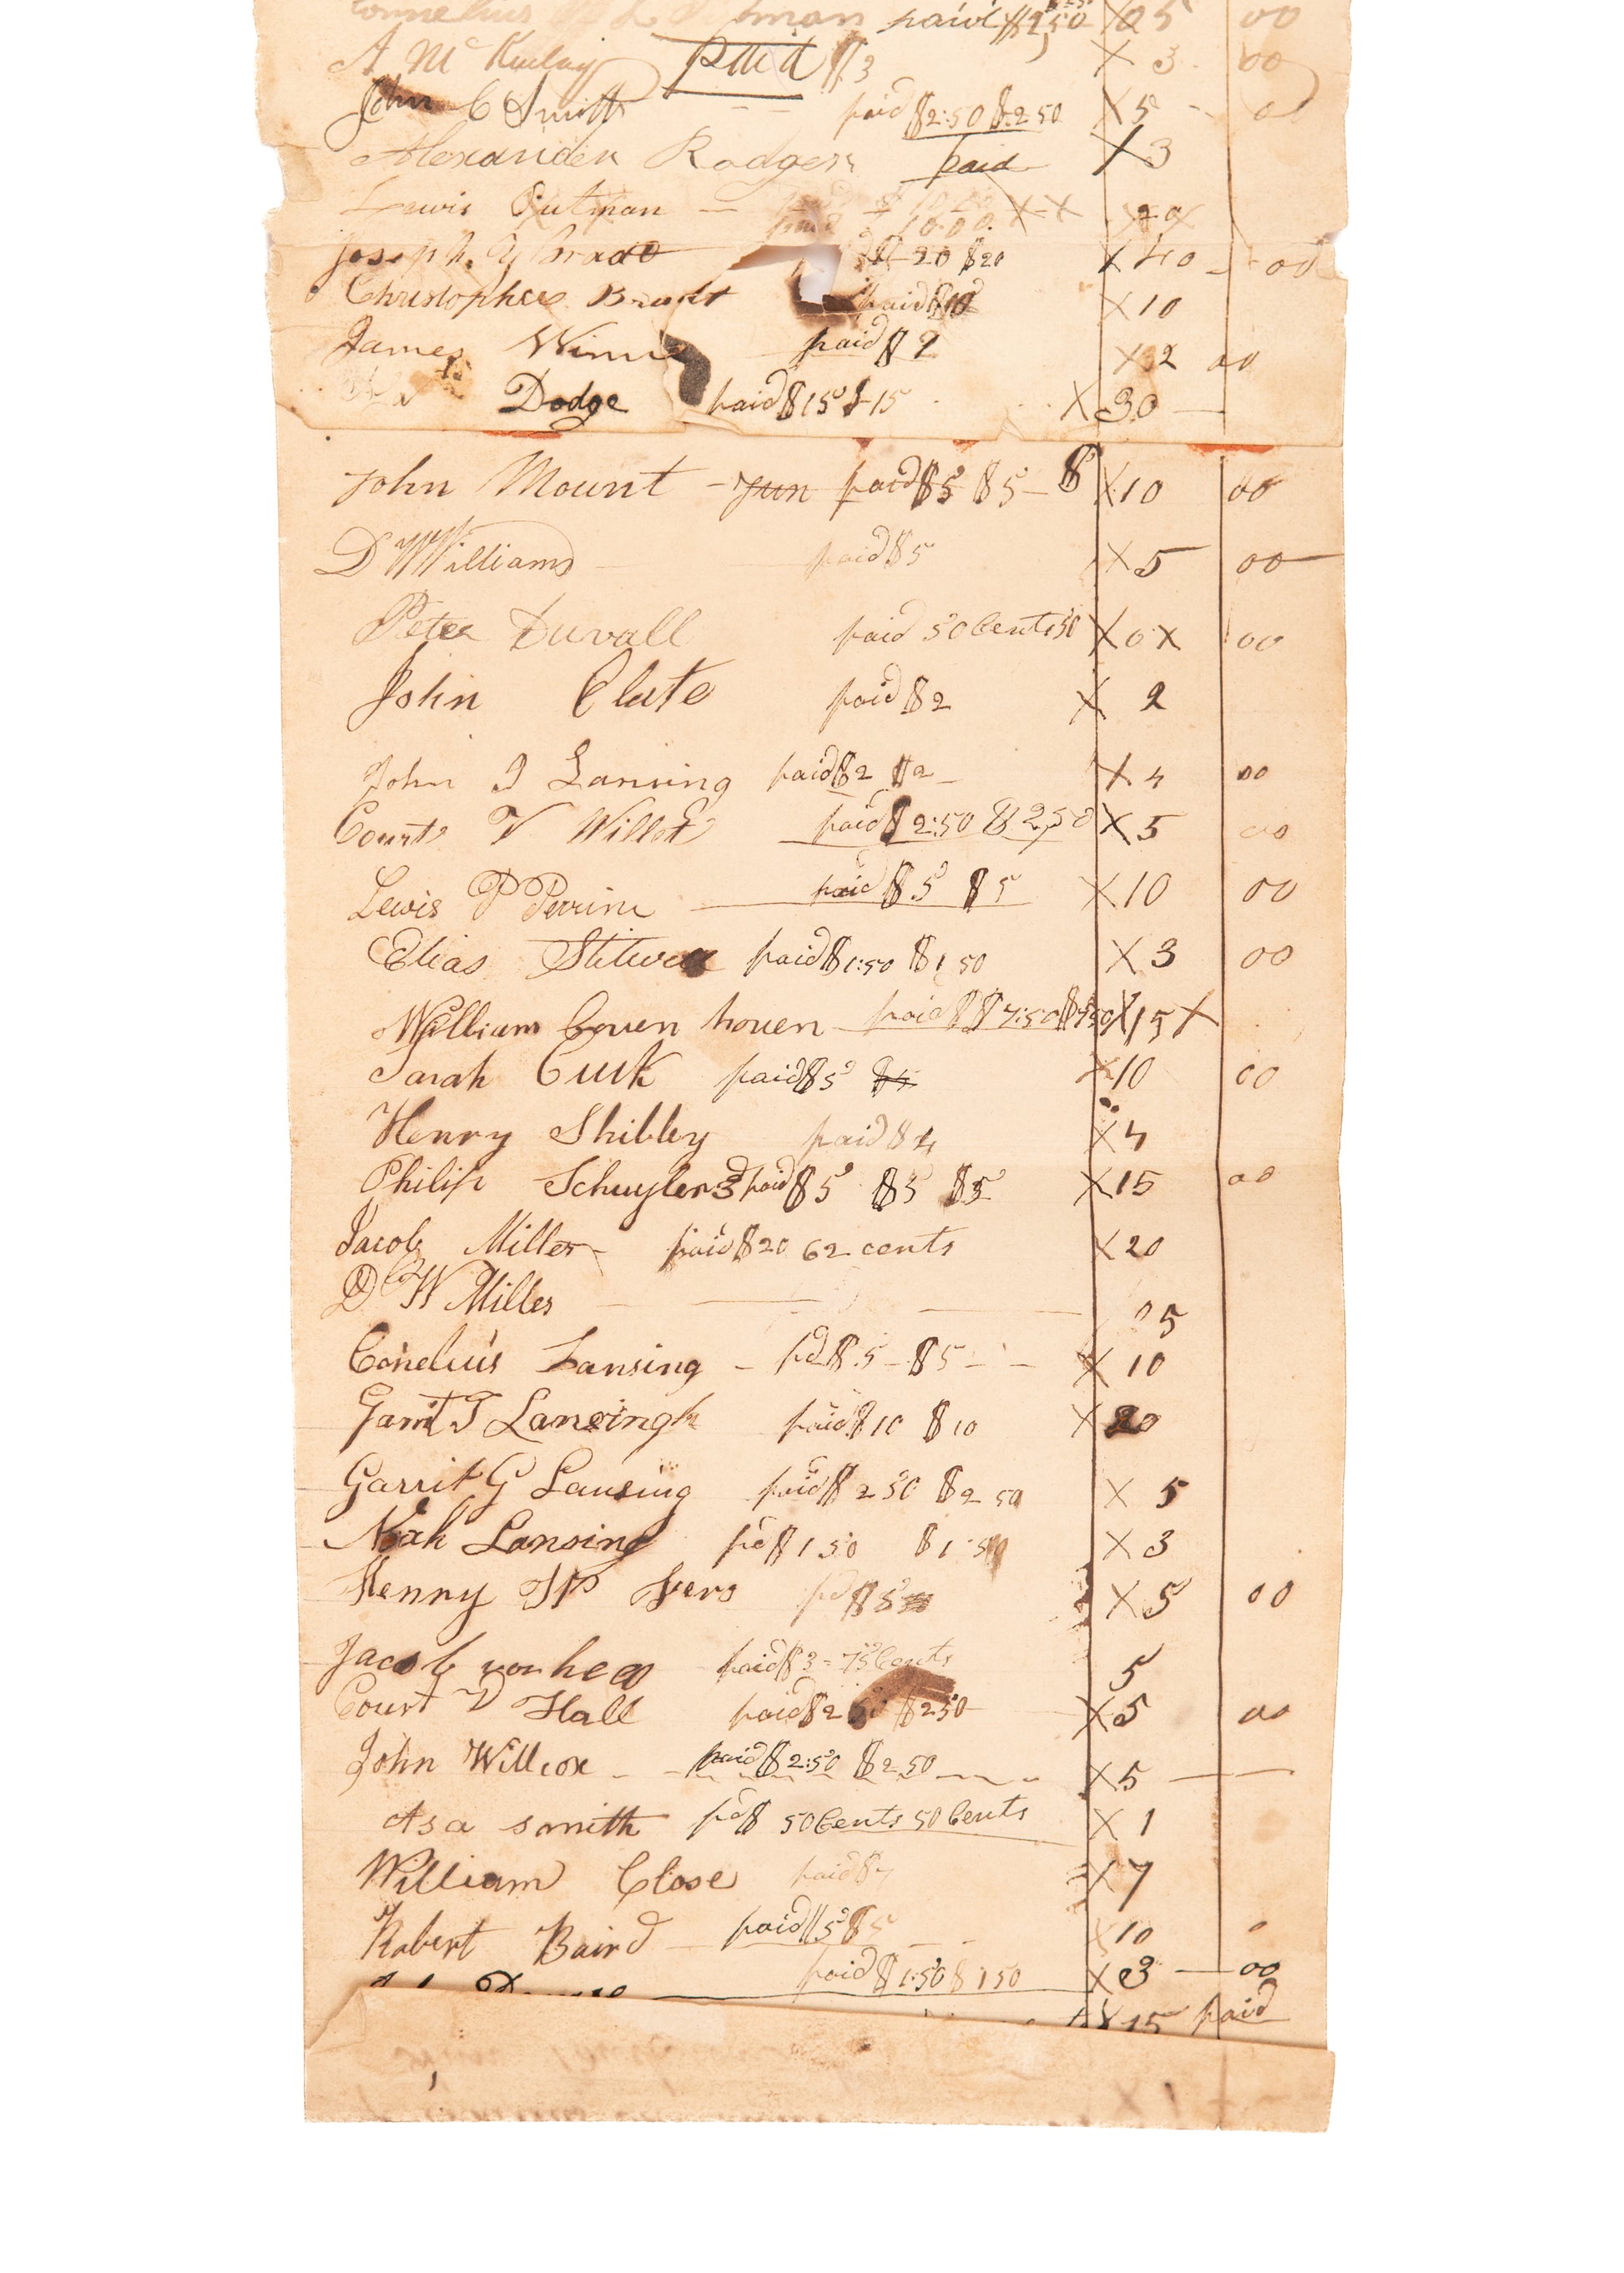 Cornelius paid $2,50 X25 00
A McKinlay paid $3 X 3 00
John C Smith paid $2:50 $2 50 X5 - 0
Alexander Rodgers paid X3
Lewis Putman — paid $ 10.00 X-X 20
paid 10.00
Joseph $20 $20 X 40 - 00
Christopher Brandt paid $10 X10
James Winne paid $2 X2 00
Dodge paid $15 $15 X30 —
John Mount - Jun paid $5 $5 - $ X10 00
D W Williams paid $5 X5 00
Peter Duvall paid 50 Cents 50 X0X 00
John Clute paid $2 X 2
John I Lansing paid $2 $2 X4 00
Court V Willot paid $2:50 $2,50 X5 00
Lewis P Perrine paid $5 $5 X10 00
Elias paid $1:50 $1 50 X3 00
William Coven hoven paid $7:50 $7 50 X15X
Sarah Cuck paid $5 $5 X10 00
Henry Shibley paid $4 X4
Philip Schuyler 3d paid $5 $5 $5 X15 00
Jacob Miller - paid $20 62 cents X20
D W Miller 5
Conelius Lansing - pd $5 - $5 - - X 10
Garrit T Lansingh paid $10 $10 X 20
Garrit G Lansing paid $2 50 $2 50 X 5
Lansing pd $1 50 $1 50 X 3
Henry pd $5 X5 00
Jacob paid $3 = 75 Cents 5
Court D Hall paid $2 50 $2 50 X5 00
John Willcox paid $2:50 $2 50 X5 —
Asa smith pd $ 50 Cents 50 Cents X 1
William Close paid $7 X7
Robert Baird paid $5 $5 X10 0
paid $1:50 $1 50 X3 — 00
X15 paid